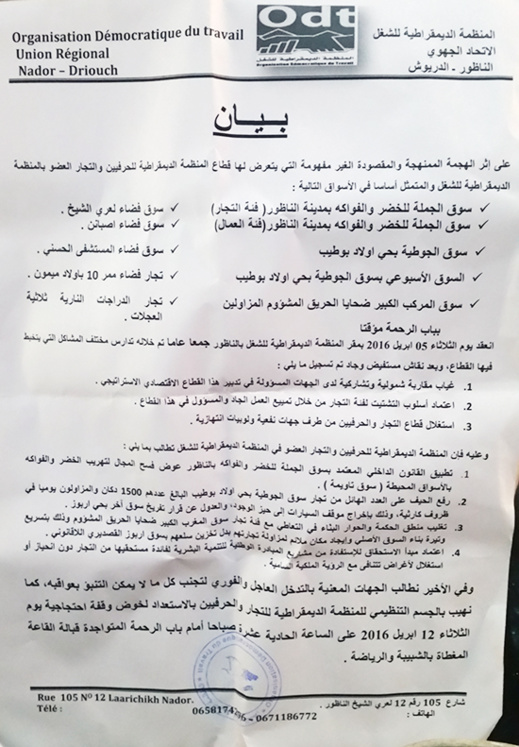 Organisation Démocratique du travail
Union Régional
Nador – Driouch
Odt
المنظمة الديمقراطية للشغل
Organisation Démocratique du Travail
المنظمة الديمقراطية للشغل
الاتحاد الجهوي
الناظور ـ الدريوش
بيـان
على إثر الهجمة الممنهجة والمقصودة الغير مفهومة التي يتعرض لها قطاع المنظمة الديمقراطية للحرفيين والتجار العضو بالمنظمة
الديمقراطية للشغل والمتمثل أساسا في الأسواق التالية :
✓ سوق الجملة للخضر والفواكه بمدينة الناظور( فئة التجار)
✓ سوق الجملة للخضر والفواكه بمدينة الناظور(فئة العمال)
✓ سوق الجوطية بحي اولاد بوطيب
✓ السوق الأسبوعي بسوق الجوطية بحي اولاد بوطيب
✓ سوق المركب الكبير ضحايا الحريق المشؤوم المزاولين
بباب الرحمة مؤقتا
✓ سوق فضاء لعري الشيخ .
✓ سوق فضاء اصبانن .
✓ سوق فضاء المستشفى الحسني .
✓ تجار فضاء ممر 10 باولاد ميمون .
✓ تجار الدراجات النارية ثلاثية
العجلات .
انعقد يوم الثلاثاء 05 ابريل 2016 بمقر المنظمة الديمقراطية للشغل بالناظور جمعا عاما تم خلاله تدارس مختلف المشاكل التي يتخبط
فيها القطاع، وبعد نقاش مستفيض وجاد تم تسجيل ما يلي :
1. غياب مقاربة شمولية وتشاركية لدى الجهات المسؤولة في تدبير هذا القطاع الاقتصادي الاستراتيجي .
2. اعتماد أسلوب التشتيت لفئة التجار من خلال تمييع العمل الجاد والمسؤول في هذا القطاع .
3. استغلال قطاع التجار والحرفيين من طرف جهات نفعية ولوبيات انتهازية .
وعليه فإن المنظمة الديمقراطية للحرفيين والتجار العضو في المنظمة الديمقراطية للشغل تطالب بما يلي :
1. تطبيق القانون الداخلي المعتمد بسوق الجملة للخضر والفواكه بالناظور عوض فسح المجال لتهريب الخضر والفواكه
بالأسواق المحيطة ( سوق تاويمة ) .
2. رفع الحيف على العدد الهائل من تجار سوق الجوطية بحي اولاد بوطيب البالغ عددهم 1500 دكان والمزاولون يوميا في
ظروف كارثية، وذلك بإخراج موقف السيارات إلى حيز الوجود، والعدول عن قرار تفريخ سوق آخر بحي اربوز .
3. تغليب منطق الحكمة والحوار البناء في التعاطي مع فئة تجار سوق المغرب الكبير ضحايا الحريق المشؤوم وذلك بتسريع
وتيرة بناء السوق الأصلي وإيجاد مكان ملائم لمزاولة تجارتهم بدل تخزين سلعهم بسوق اربوز القصديري اللاقانوني .
4. اعتماد مبدأ الاستحقاق للإستفادة من مشاريع المبادرة الوطنية للتنمية البشرية لفائدة مستحقيها من التجار دون انحياز أو
استغلال لأغراض تتنافى مع الرؤية الملكية السامية .
وفي الأخير نطالب الجهات المعنية بالتدخل العاجل والفوري لتجنب كل ما لا يمكن التنبؤ بعواقبه، كما
نهيب بالجسم التنظيمي للمنظمة الديمقراطية للتجار والحرفيين بالاستعداد لخوض وقفة احتجاجية يوم
الثلاثاء 12 ابريل 2016 على الساعة الحادية عشرة صباحا أمام باب الرحمة المتواجدة قبالة القاعة
المغطاة بالشبيبة والرياضة .
Rue 105 Nº 12 Laarichikh Nador.
Télé :
شارع 105 رقم 12 لعري الشيخ الناظور .
الهاتف :
0671186772